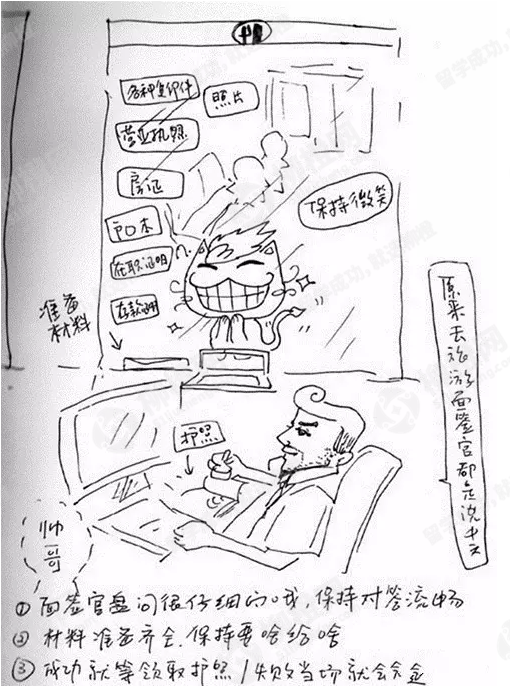 各种复印件
照片
营业执照
房证
户口本
在职证明
存款证明
保持微笑
准备
材料
护照
帅哥
原来去旅游面签官都说中文
①面签官盘问很仔细的哦,保持对答流畅
②材料准备齐全.保持要啥给啥
③成功就等领取护照/失败当场就会
留学成功,